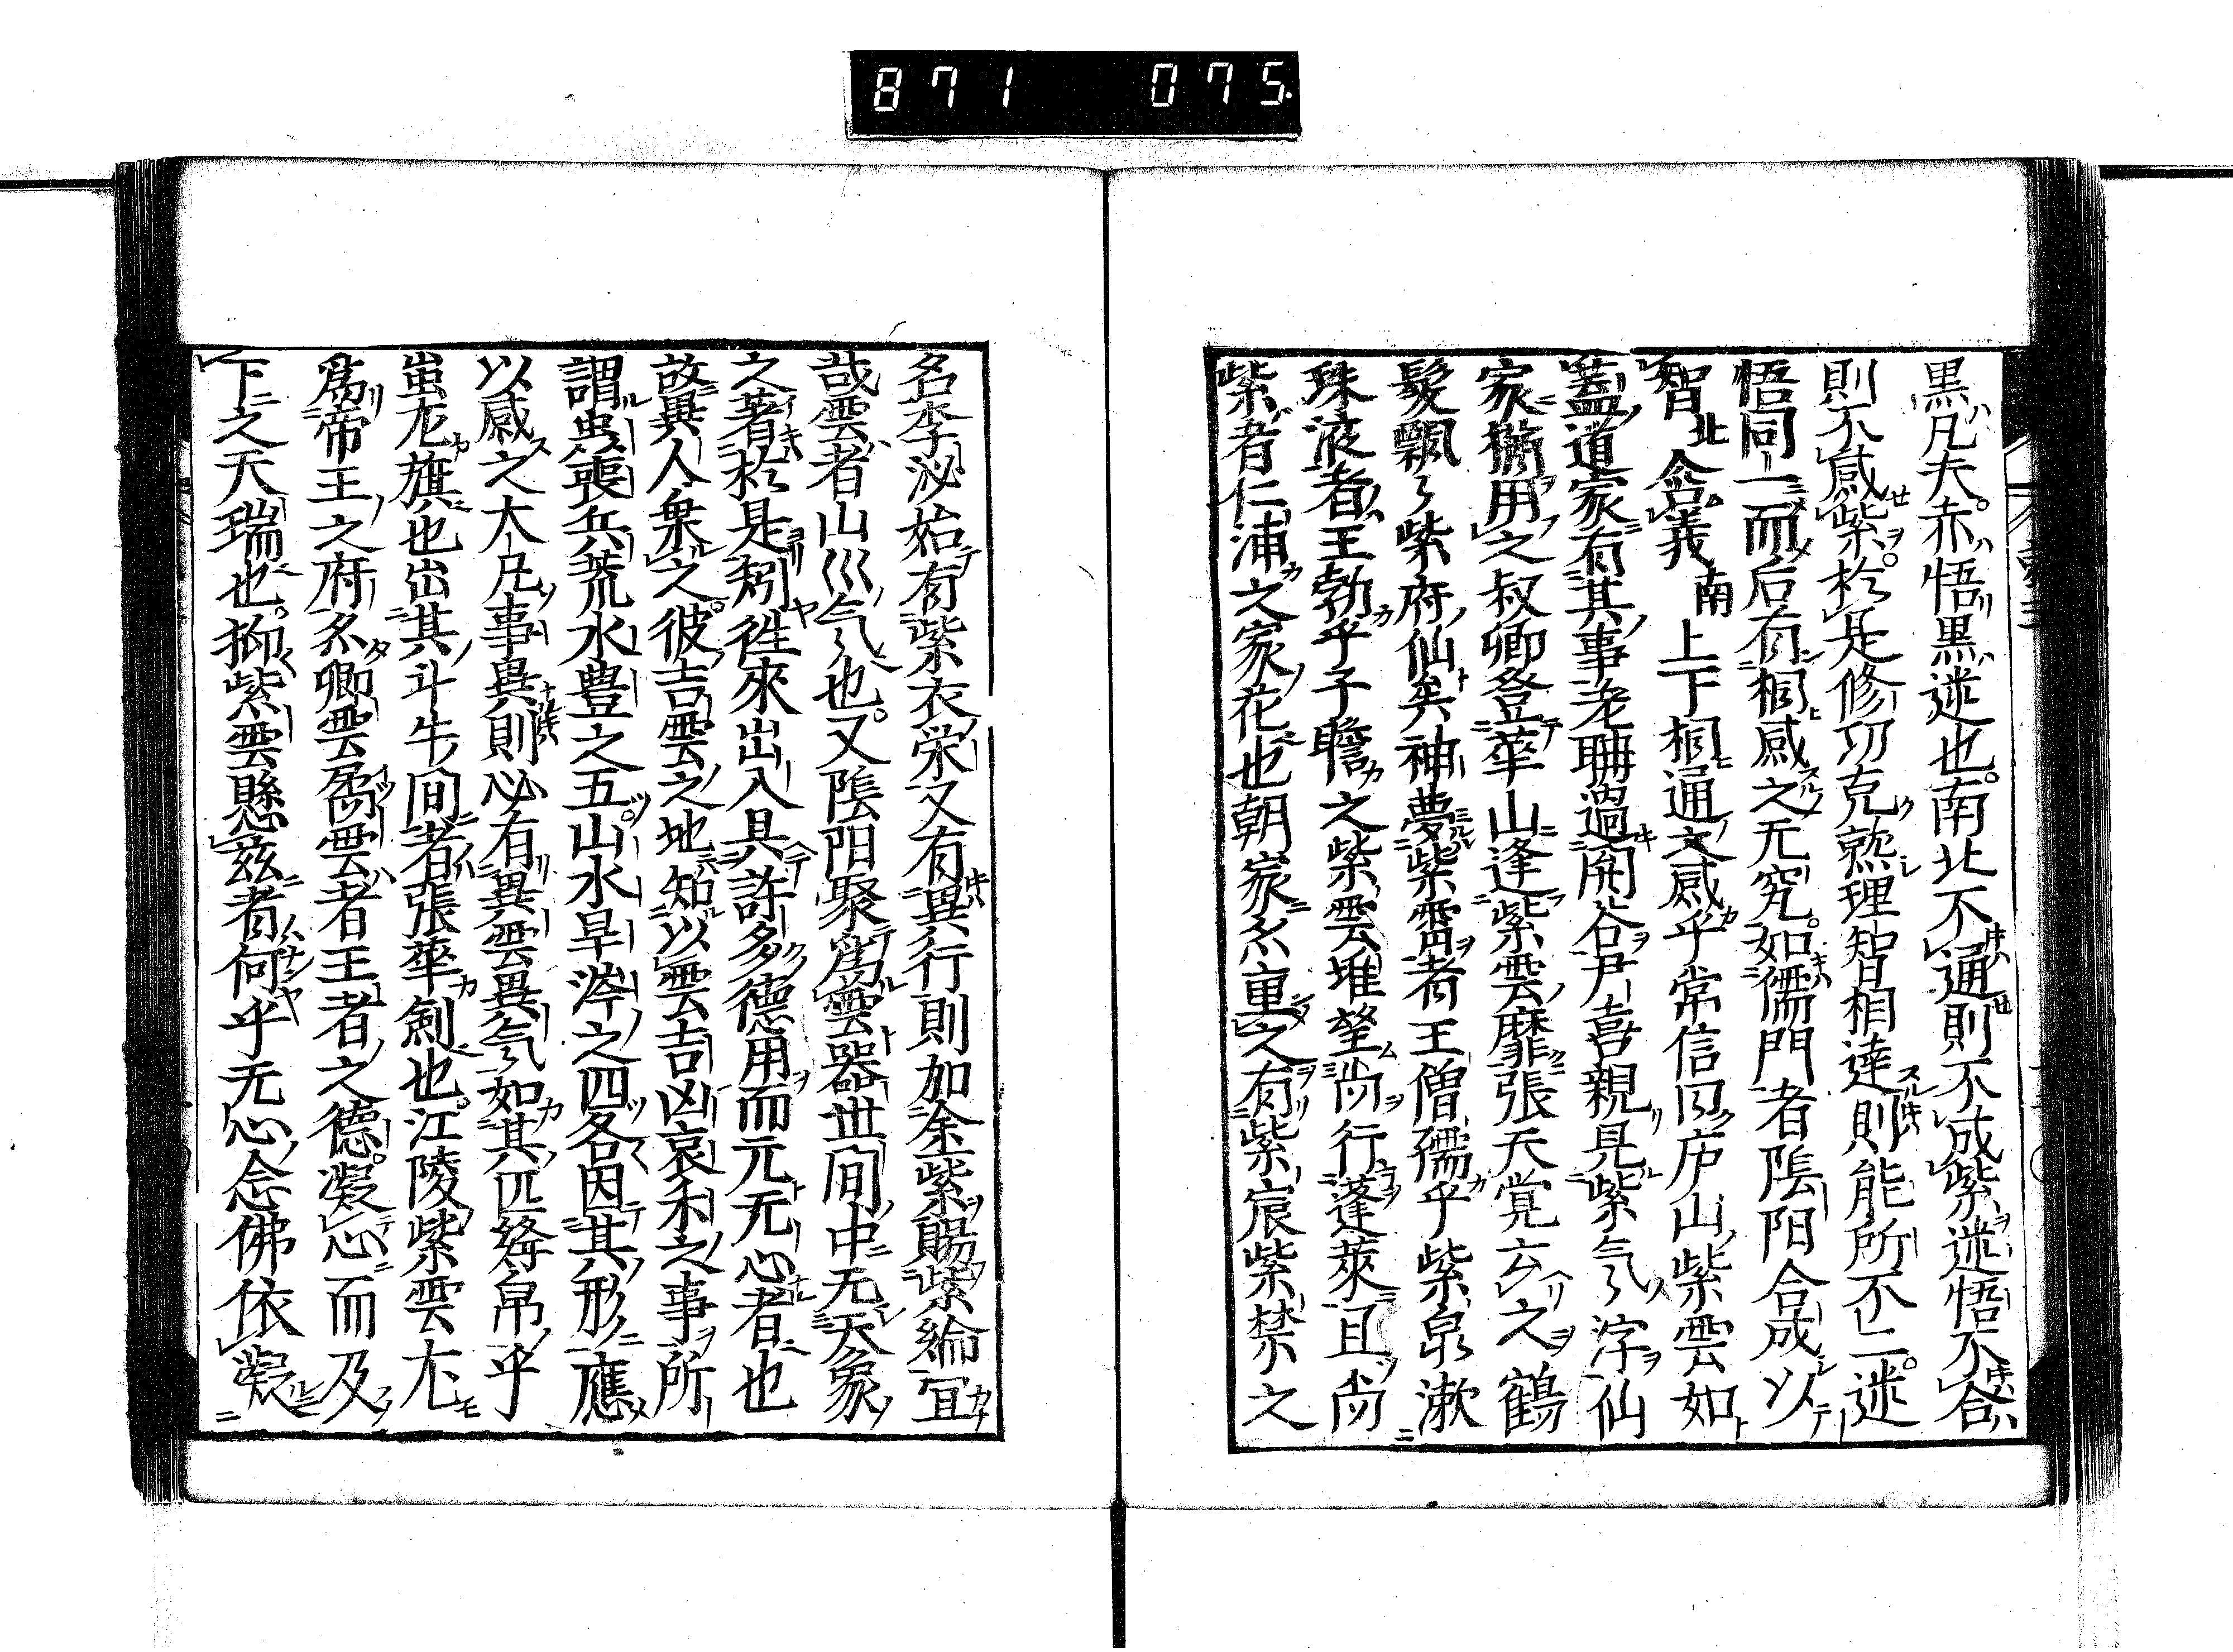 871 075
黒凡夫。赤悟黒迷也。南北不通則不成紫迷悟不合
則不感紫。於是修功克熟理智相達則能所不亡。迷
悟同一而后有相感之无究。如儒門者陰陽合成以
智北合義南上下相通交感乎常信因庐山紫雲如
蓋道家有其事老聃過関谷尹喜親見紫气浮仙
家猶用之叔卿登華山逢紫雲靡張天覚云之鶴
髮飄々紫府仙矣神夢紫霄者王僧孺乎紫泉漱
珠液者王勃乎子瞻之紫雲堆望尚行蓬萊且尚
紫者仁浦之家花也朝家尓重之有紫宸紫禁之
名李泌始有紫衣栄又有異行則加金紫賜紫綸冝
哉雲者山巛气也。又陰陽聚爲雲器世間中无天象
之著於是矧徃來出入具許多德用而元无心者也
故異人乗之。彼吉雲之地知以雲吉凶哀禾之事所
謂虫喪兵荒水豊之五。山水旱涔之四各因其形應
以感之大凡事異則必有異雲異气如其匹絳帛乎
蚩尤旗也出其斗牛間者張華劍也。江陵紫雲尤
爲帝王之府尓卿雲矞雲者王者之德。凝心而及
下之天瑞也。抑紫雲懸茲者何乎无心念佛依凝